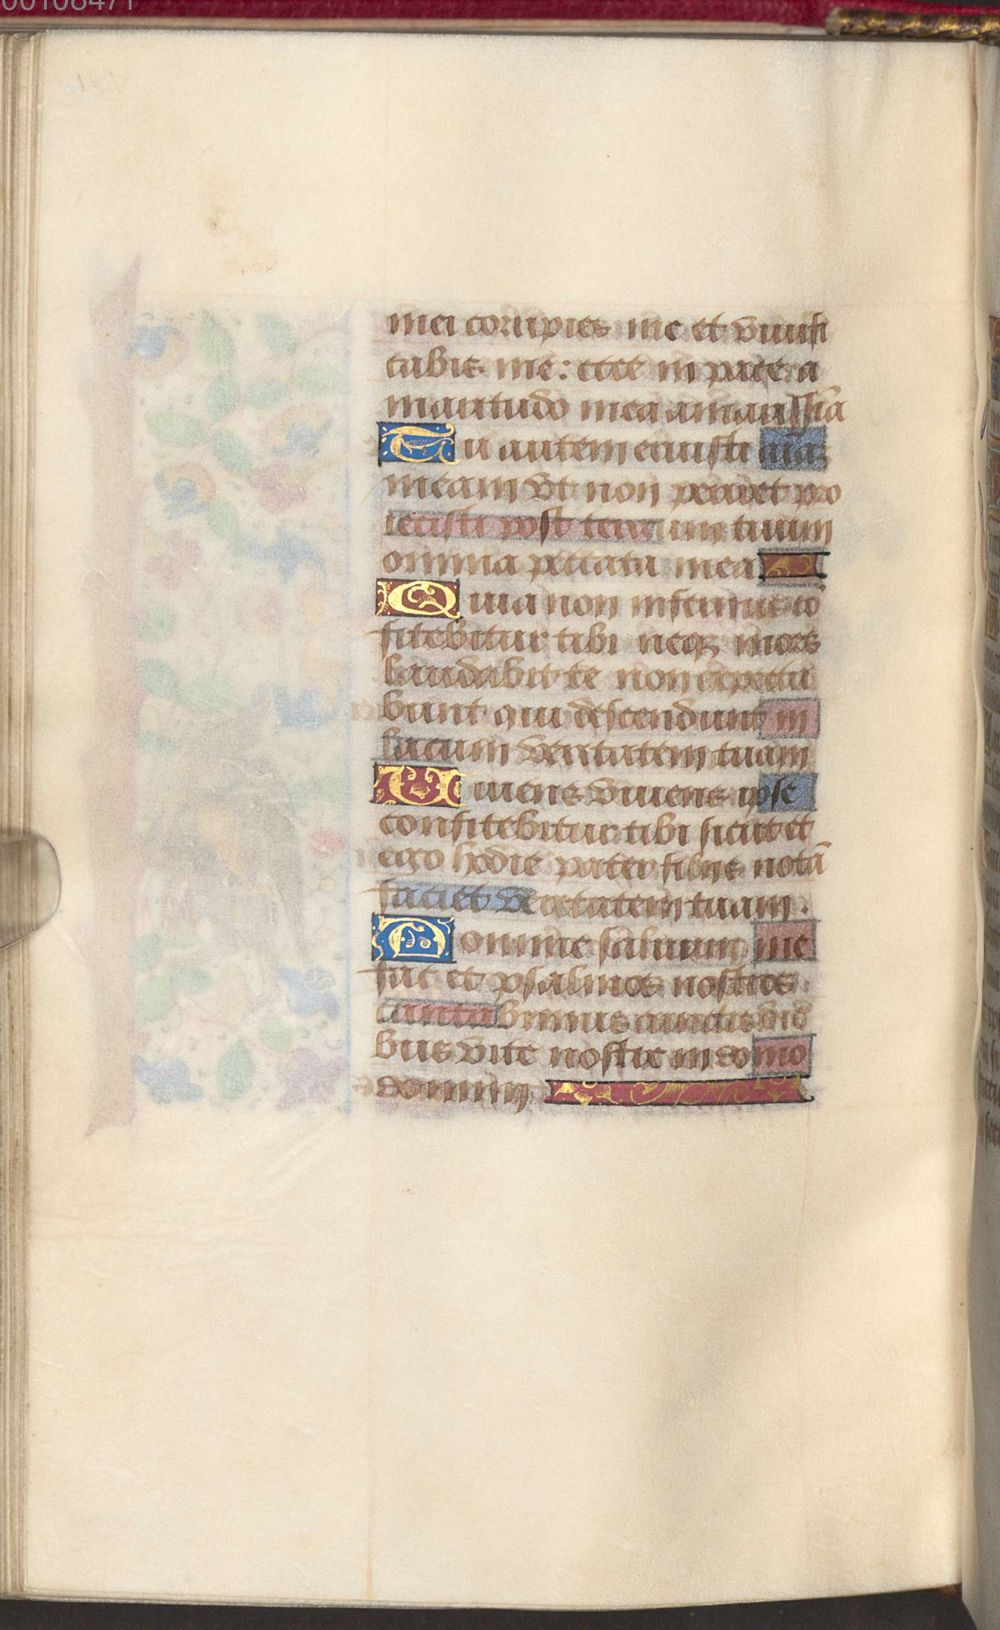 00108471
mei corripies me et viuifi
cabis me: ecce in pace a
maritudo mea amarissīa
Tu autem eruisti aīaȝ
meam vt non periret pro
iecisti post tergum tuum
omnia peccata mea
Quia non infernus cō
fitebitur tibi neqȝ mors
laudabit te non expecta
bunt qui descendunt in
lacum veritatem tuam
Uiuens viuens ipse
confitebitur tibi sicut et
ego hodie pater filijs notā
faciet veritatem tuam.
Domine saluum me
fac et psalmos nostros
cantabimus cunctis die
bus vite nostre in domo
domini